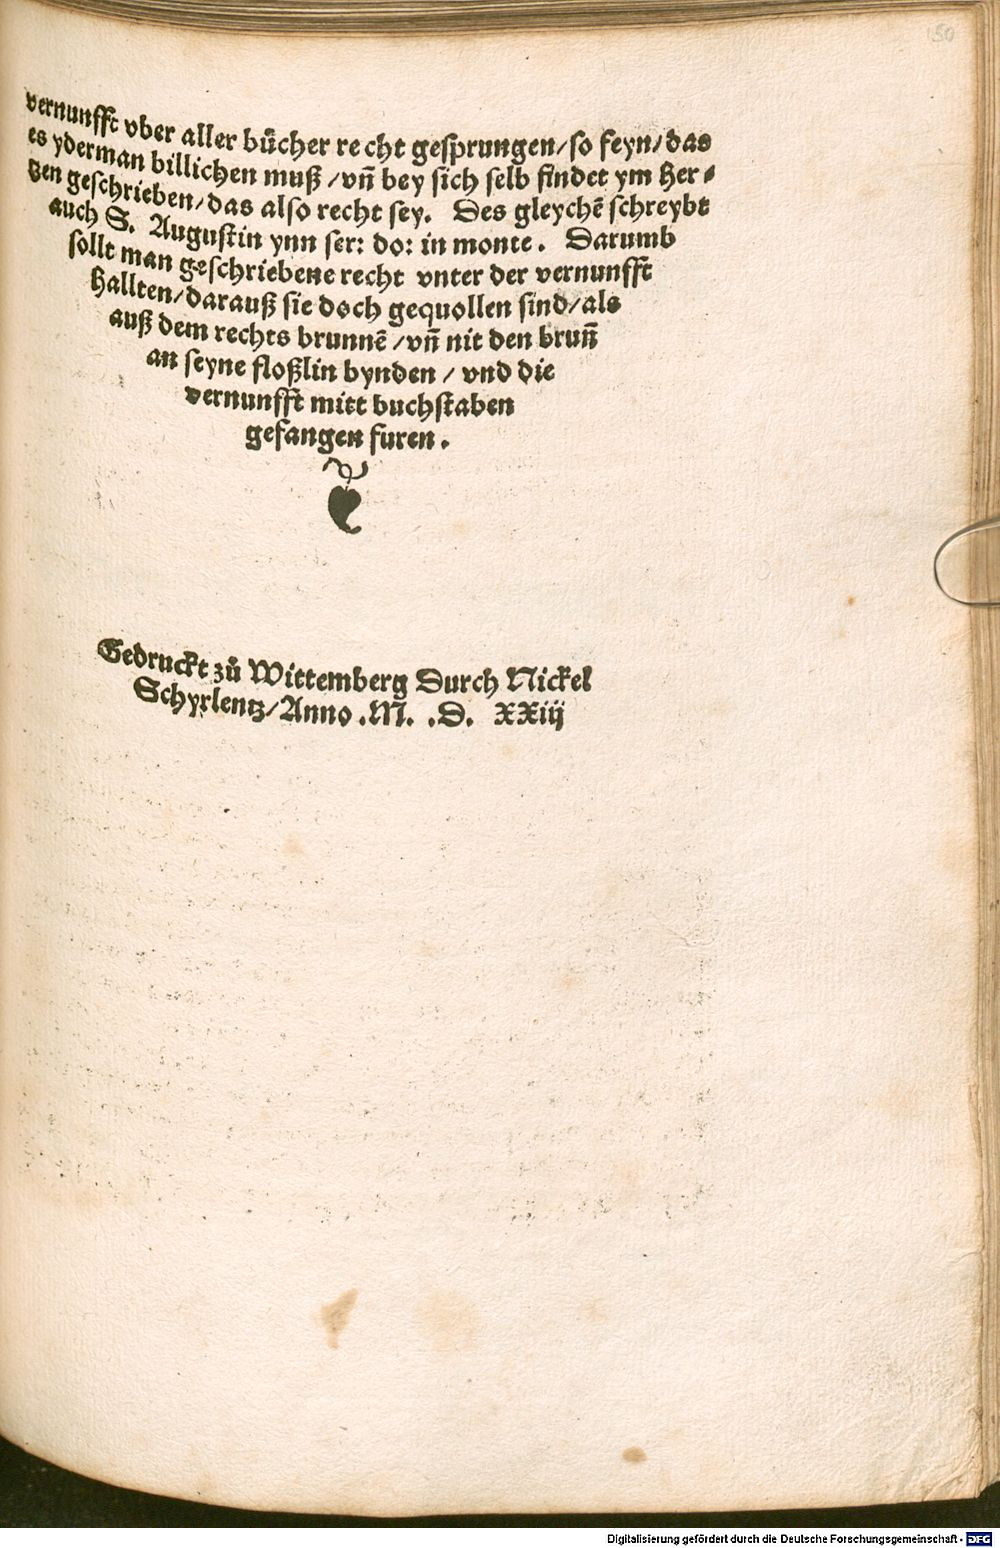 150
vernunfft vber aller bücher recht gesprungen/so feyn/das
es yderman billichen muß /vñ bey sich selb findet ym Her⸗
tzen geschrieben/das also recht sey. Des gleychē schreybt
auch S. Augustin ynn ser: do: in monte. Darumb
sollt man geschriebene recht vnter der vernunfft
hallten/darauß sie doch gequollen sind/als
auß dem rechts brunnē /vñ nit den bruñ
an seyne floßlin bynden / vnd die
vernunfft mitt buchstaben
gefangen furen.
Gedruckt zů Wittemberg Durch Nickel
Schyrlentz/Anno .M. .D. XXiij
Digitalisierung gefördert durch die Deutsche Forschungsgemeinschaft - DFG